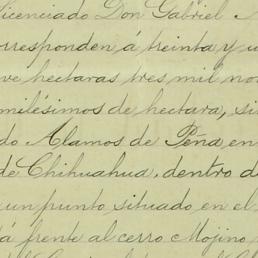 icenciado Don Gabriel
orresponden á treinta y u
ve hectaras tres mil no
milésimos de hectara, si
do Alamos de Peña en
de Chihuahua, dentro d
un punto situado en el
á frente al cerro Mojino